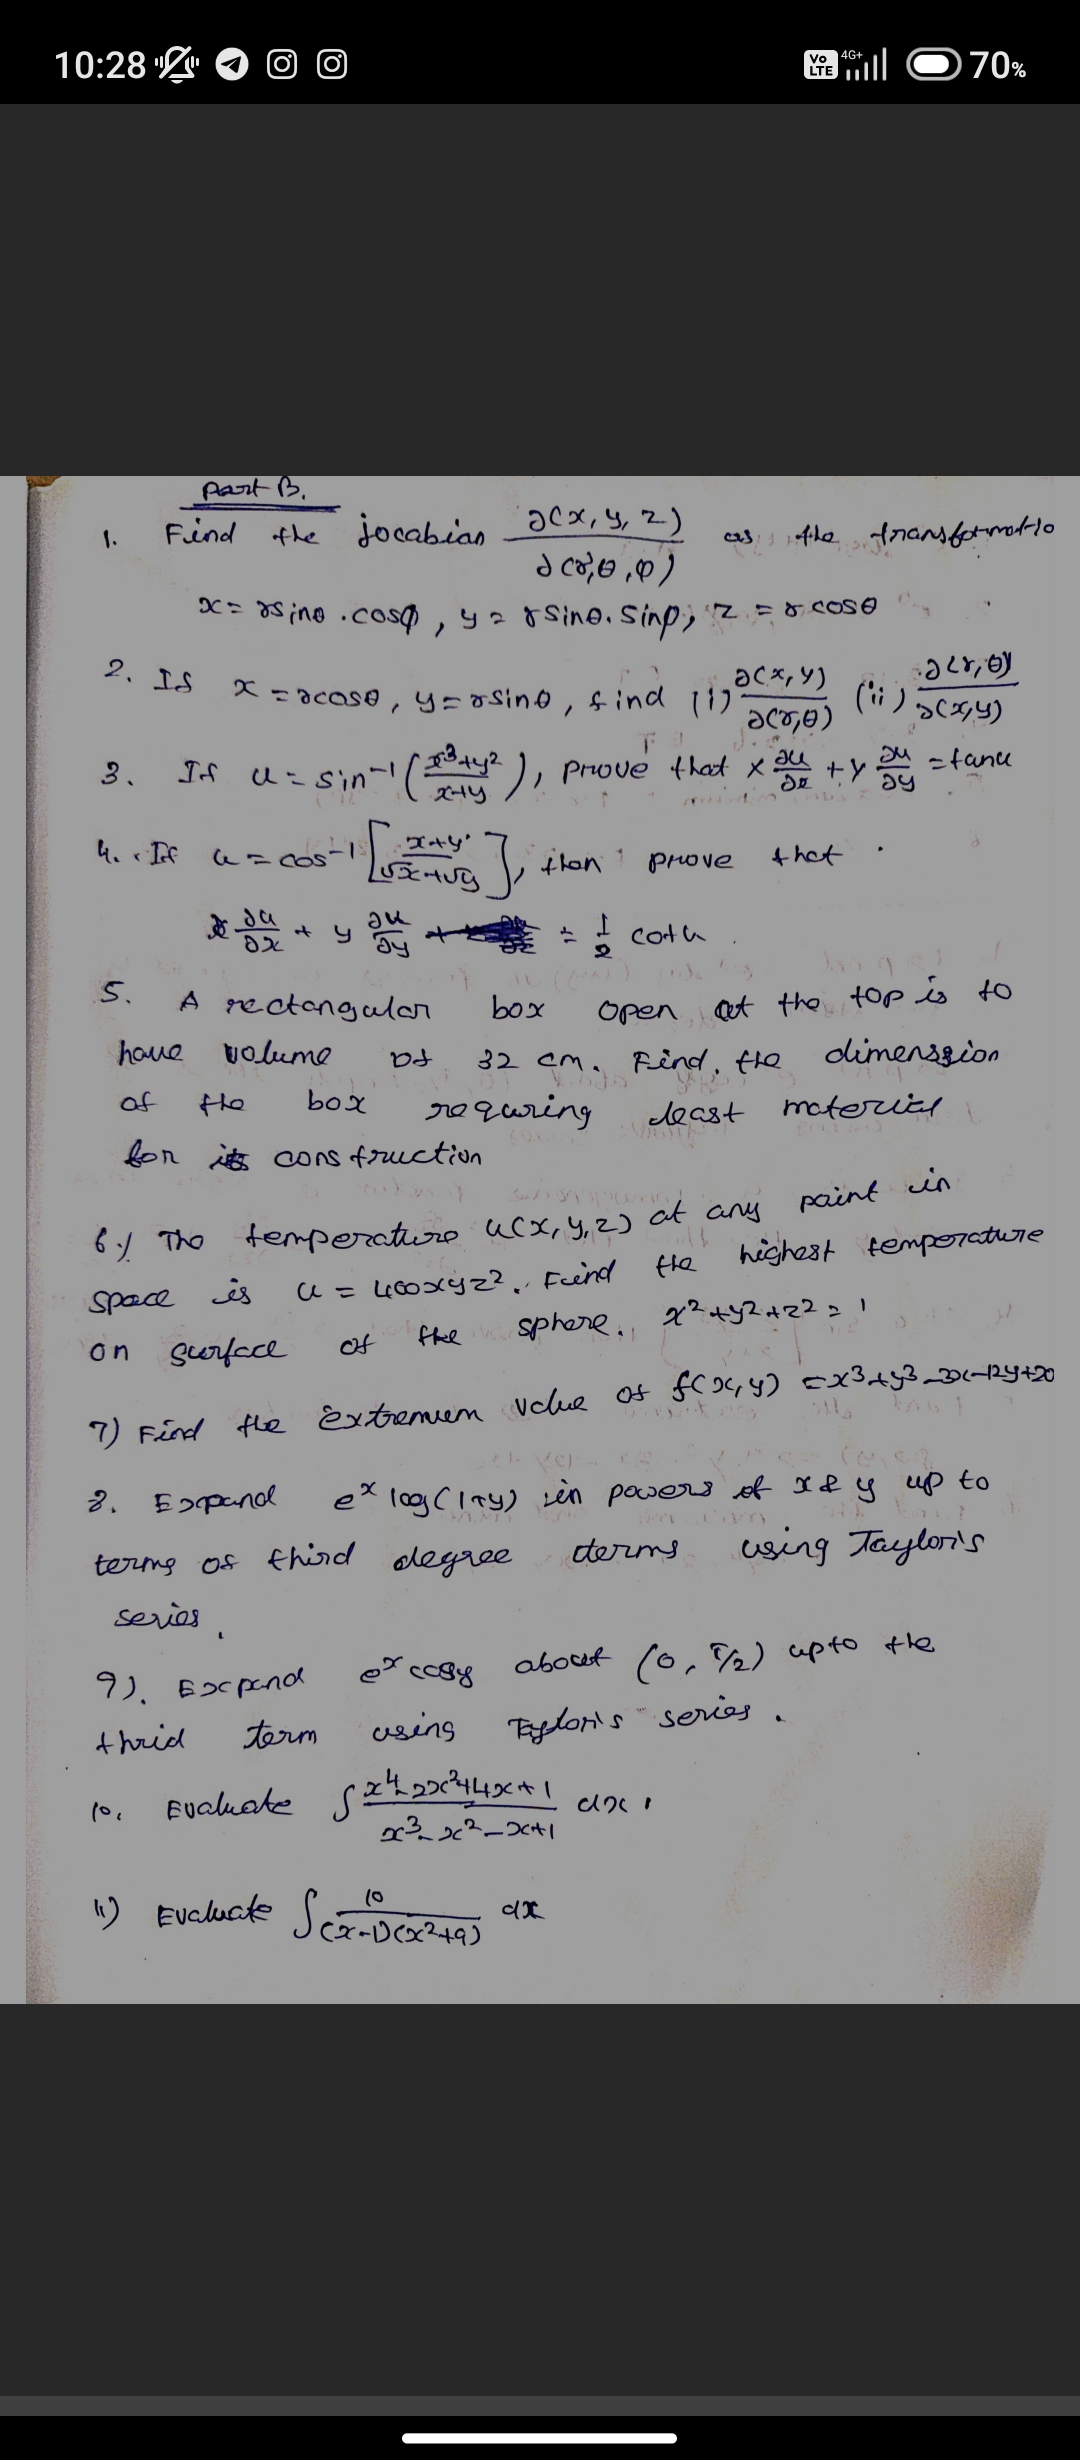 10:28
Vo LTE 4G+ 70%
Part B.
1. Find the jocabian ∂(x, y, z) / ∂(r, θ, φ) as the transformatio
x = rsinθ . cosφ , y = rsinθ. sinφ, z = r cosθ
2. If x = rcosθ, y = rsinθ, find (i) ∂(x, y) / ∂(r, θ) (ii) ∂(r, θ) / ∂(x, y)
3. If u = sin⁻¹ ( x³+y² / x+y ), prove that x ∂u/∂x + y ∂u/∂y = tanu
4. If u = cos⁻¹ [ x+y / √x+√y ], then prove that
x ∂u/∂x + y ∂u/∂y = 1/2 cotu.
5. A rectangular box open at the top is to
have volume of 32 cm. Find. the dimenssion
of the box requring least material
for its construction
6.) The temperature u(x, y, z) at any point in
space is u = 400xyz². Find the highest temperature
on surface of the sphere. x² + y² + z² = 1
7) Find the extremum value of f(x, y) = x³+y³-3x-12y+20
8. Expand eˣ log(1+y) in powers of x & y up to
terms of third degree terms using Taylor's
series.
9). Expand eˣ cosy about (0, π/2) upto the
thrid term using Taylor's series.
10. Evaluate ∫ x⁴-2x²+4x+1 / x³-x²-x+1 dx.
11) Evaluate ∫ 10 / (x-1)(x²+9) dx